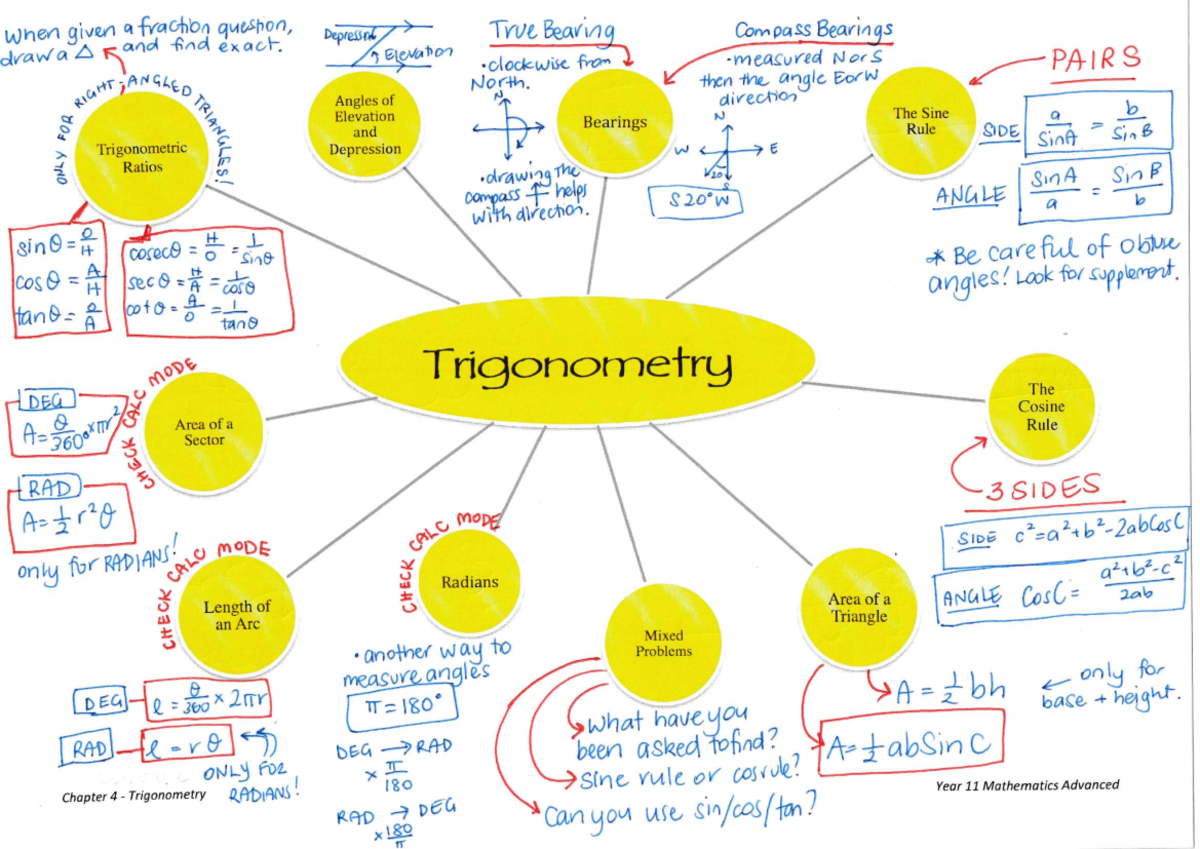 When given a fraction question,
draw a △ and find exact.
ONLY FOR RIGHT-ANGLED TRIANGLES!
Trigonometric
Ratios
sinθ = O/H
cosθ = A/H
tanθ = O/A
cosecθ = H/O = 1/sinθ
secθ = H/A = 1/cosθ
cotθ = A/O = 1/tanθ
Depression
Elevation
Angles of
Elevation
and
Depression
True Bearing
•clockwise from
North.
N
•drawing the
compass helps
with direction.
Bearings
Compass Bearings
•measured N or S
then the angle E or W
direction
N
W
E
20°
S
S20°W
The Sine
Rule
PAIRS
SIDE a/SinA = b/SinB
ANGLE SinA/a = SinB/b
* Be careful of obtuse
angles! Look for supplement.
Trigonometry
CHECK CALC MODE
Area of a
Sector
DEG
A = θ/360° × πr²
RAD
A = ½ r²θ
only for RADIANS!
The
Cosine
Rule
3 SIDES
SIDE c²=a²+b²-2abCosC
ANGLE CosC = a²+b²-c²/2ab
CHECK CALC MODE
Length of
an Arc
DEG l = θ/360 × 2πr
RAD l = rθ
ONLY FOR
RADIANS!
CHECK CALC MODE
Radians
•another way to
measure angles
π = 180°
DEG → RAD
× π/180
RAD → DEG
× 180/π
Mixed
Problems
What have you
been asked to find?
Sine rule or cos rule?
Can you use sin/cos/tan?
Area of a
Triangle
A = ½ bh
← only for
base + height.
A = ½ abSinC
Chapter 4 - Trigonometry
Year 11 Mathematics Advanced